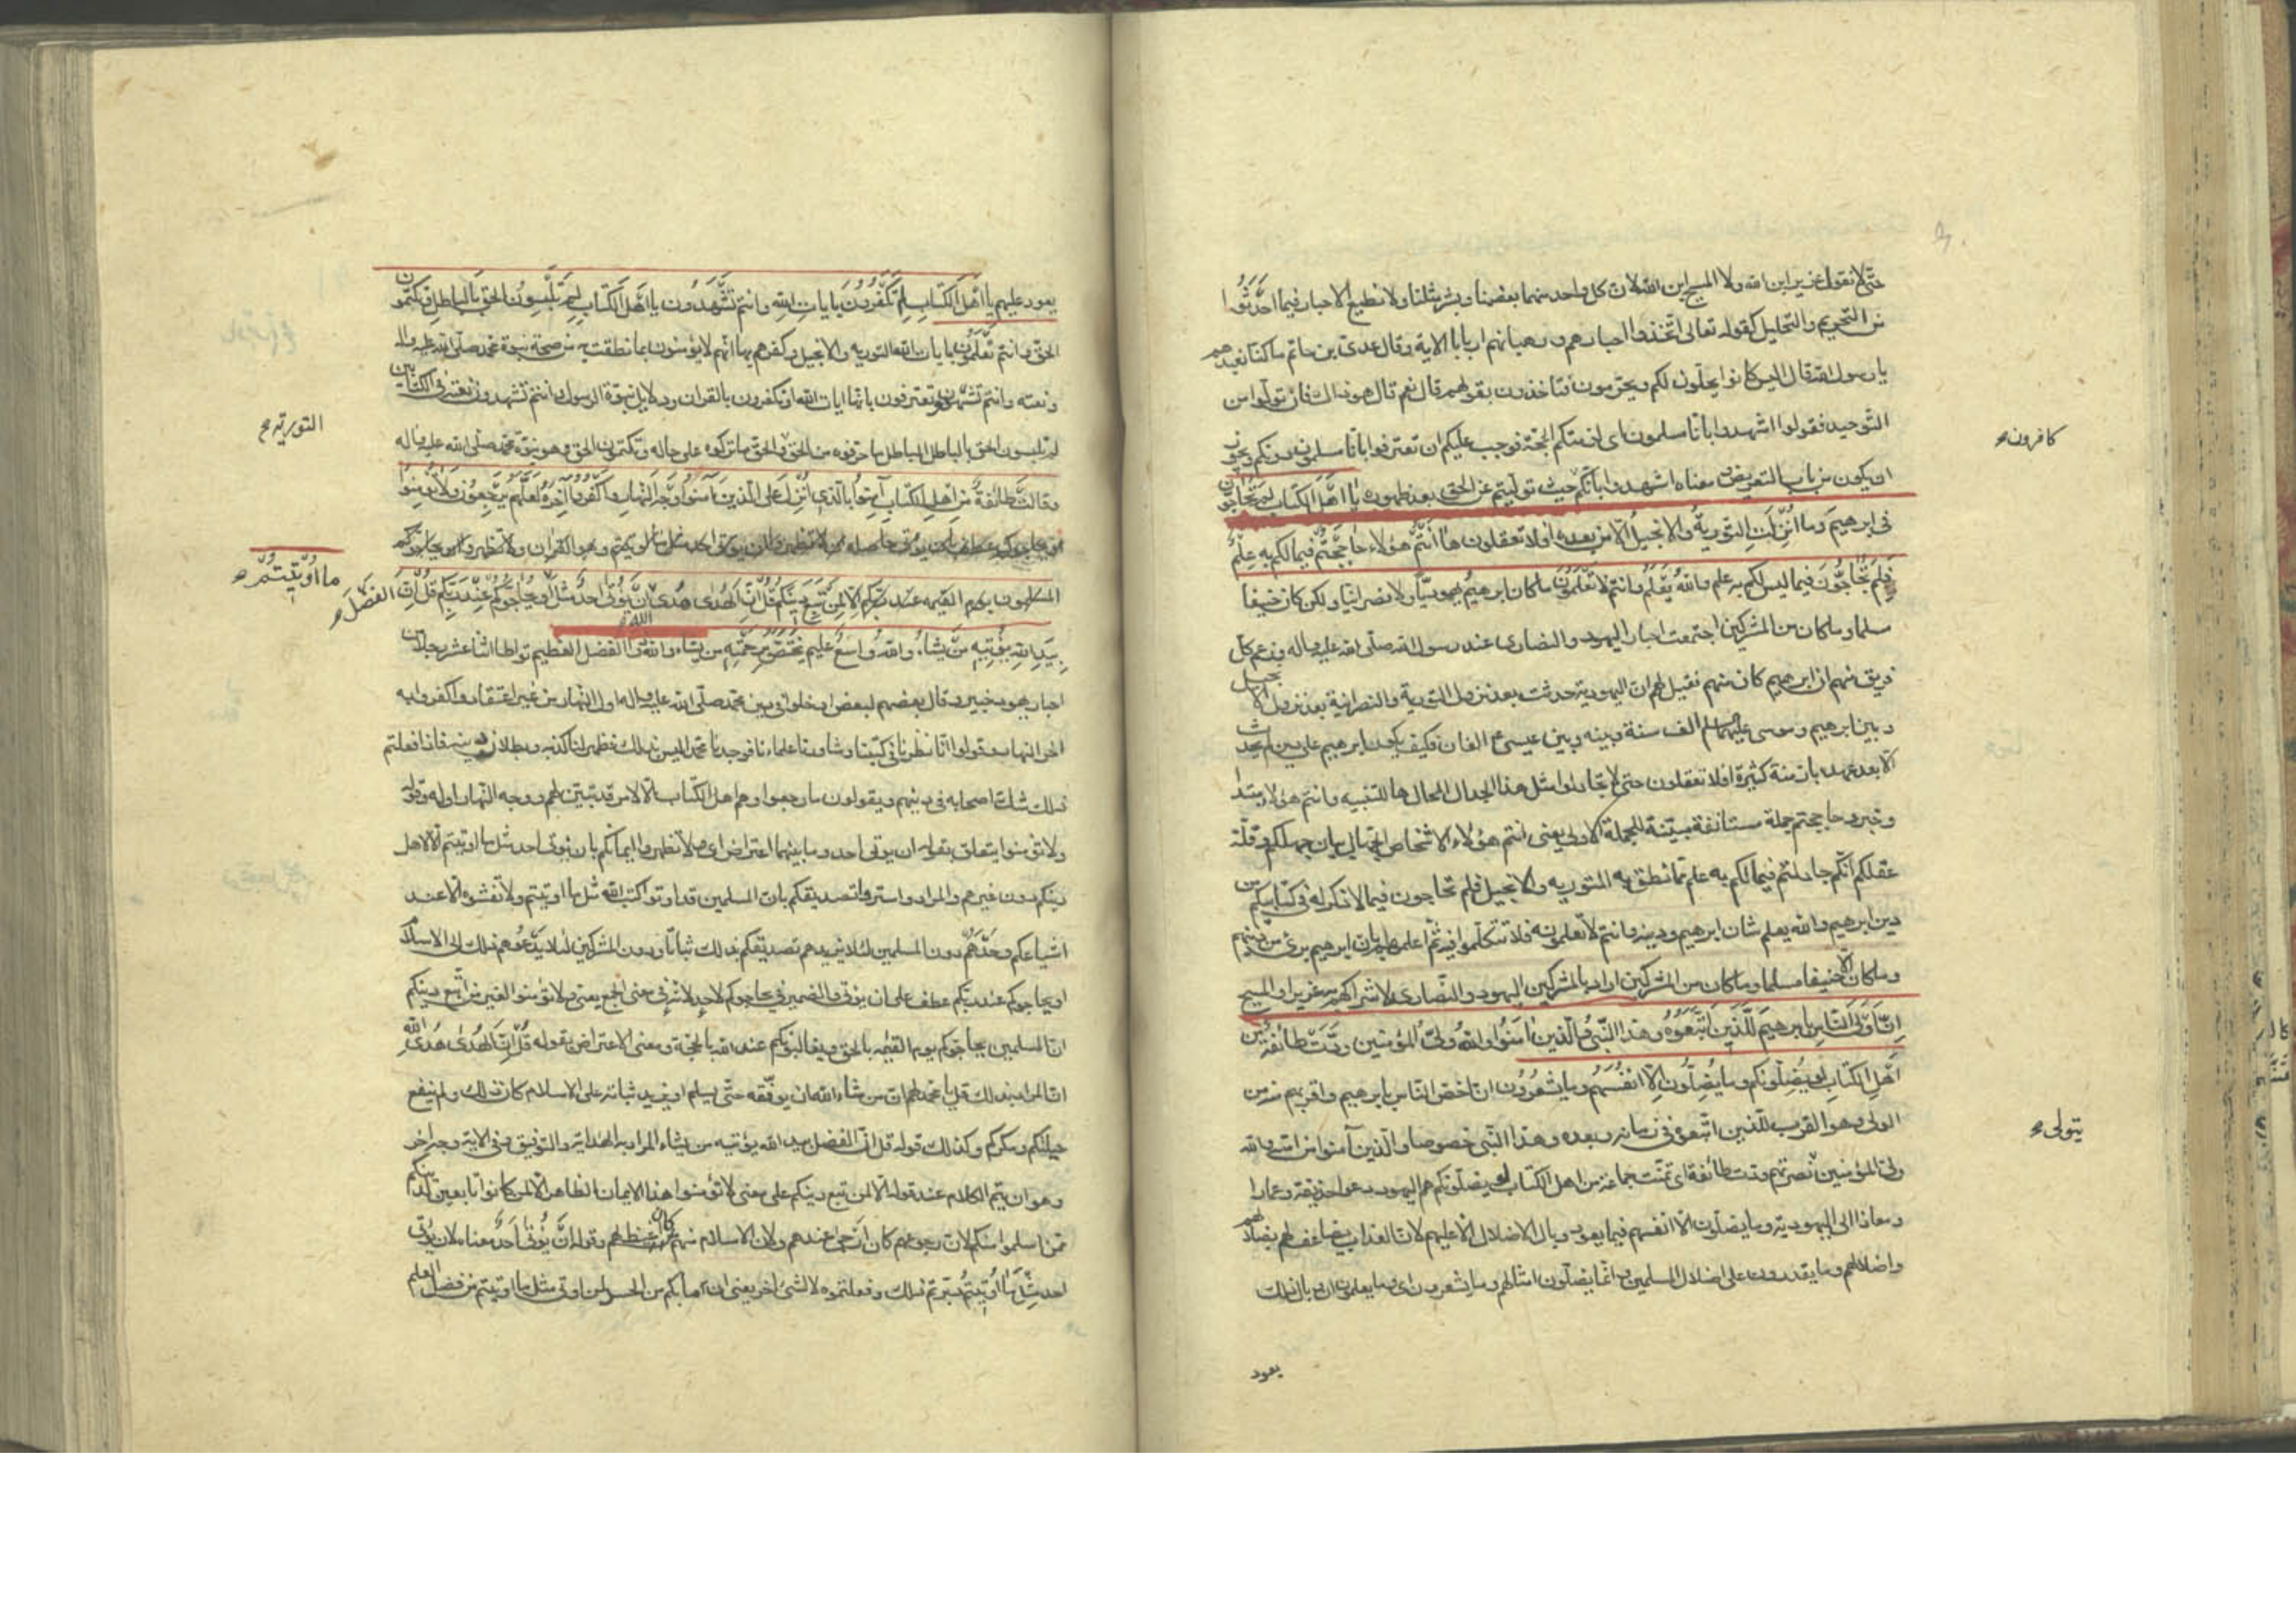 حتّى لا نقول عزير ابن الله ولا المسيح ابن الله لان كل واحد منهما بعضنا وبشر مثلنا ولا نطيع الاحبار فيما احدثوا
من التحريم والتحليل كقوله تعالى اتّخذوا احبارهم ورهبانهم اربابا الاية وقال عدى بن حاتم ما كنّا نعبدهم
يا رسول الله قال اليس كانوا يحلّون لكم ويحرّمون فتاخذون بقولهم قال نعم قال هو ذاك فان تولّوا من
التّوحيد فقولوا اشهدوا بانّا مسلمون اى لزمتكم الحجّة فوجب عليكم ان تعترفوا بانّا مسلمون دونكم ويجوز
كافرون
ان يكون من باب التعريض معناه اشهدوا بانّكم حيث تولّيتم عن الحق بعد ظهوره يا اهل الكتاب لم تحاجّون
فى ابرهيم وما انزلت التورية والانجيل الّا من بعده افلا تعقلون ها انتم هؤلاء حاججتم فيما لكم به علم
فلم تحاجّون فيما ليس لكم به علم والله يعلم وانتم لا تعلمون ما كان ابرهيم يهوديّا ولا نصرانيا ولكن كان حنيفا
مسلما وما كان من المشركين اجتمعت احبار اليهود والنصارى عند رسول الله صلّى الله عليه واله وزعم كل
فريق منهم ان ابرهيم كان منهم فقيل لهم انّ اليهودية حدثت بعد نزول التورية والنصرانية بعد نزول الانجيل
وبين ابرهيم وموسى عليهما السلم الف سنة وبينه وبين عيسى ع الفان فكيف يكون ابرهيم على دين لم يحدث
الّا بعد عهده بازمنة كثيرة افلا تعقلون حتى لا تجادلوا مثل هذا الجدال المحال ها للتنبيه وانتم هؤلاء مبتدا
وخبر وحاججتم جملة مستانفة مبيّنة للجملة الاولى يعنى انتم هؤلاء الاشخاص الحمقى بيان جهلكم وقلّة
عقلكم انّكم جادلتم فيما لكم به علم ممّا نطق به التورية والانجيل فلم تحاجون فيما لا ذكر له فى كتابيكم من
دين ابرهيم والله يعلم شان ابرهيم ودينه وانتم لا تعلمونه فلا تتكلّموا فيه ثمّ اعلمهم بان ابرهيم برئ من دينهم
وما كان الّا حنيفا مسلما وما كان من المشركين اراد بالمشركين اليهود والنّصارى لاشراكهم به عزيرا والمسيح
انّ اولى النّاس بابرهيم للّذين اتّبعوه وهذا النّبىّ والّذين آمنوا والله ولىّ المؤمنين ودّت طائفة من
اهل الكتاب لو يضلّونكم وما يضلّون الّا انفسهم وما يشعرون ان اخصّ النّاس بابرهيم واقربهم منه من
الولى وهو القرب للّذين اتّبعوه فى زمانه وبعده وهذا النّبى خصوصا والّذين آمنوا من امته والله
يتولى
ولىّ المؤمنين نصرتهم ودّت طائفة اى تمنّت جماعة من اهل الكتاب لو يضلّونكم هم اليهود دعوا حذيفة وعمارا
ومعاذا الى اليهودية وما يضلّون الّا انفسهم فيما يعود وبال الاضلال الّا عليهم لانّ العذاب يضاعف لهم بضلالهم
واضلالهم وما يقدرون على اضلال المسلمين وانّما يضلّون امثالهم وما يشعرون اى وما يعلمون ان وبال ذلك
يعود
يعود عليهم يا اهل الكتاب لم تكفرون بايات الله وانتم تشهدون يا اهل الكتاب لم تلبسون الحق بالباطل وتكتمون
الحقّ وانتم تعلمون بايات الله التورية والانجيل وكفرهم بها انّهم لا يؤمنون بما نطقت به من صحة نبوة محمد صلّى الله عليه واله
ونعته وانتم تشهدون وتعترفون بانّها ايات الله او تكفرون بالقران ودلايل نبوّة الرسول وانتم تشهدون نعته فى الكتابين
التورية
لم تلبسون الحق بالباطل الباطل ما حرّفوه من الحق والحق ما تركوه على حاله وتكتمون الحق وهو نبوّة محمّد صلّى الله عليه واله
وقالت طائفة من اهل الكتاب آمنوا بالّذى انزل على الّذين آمنوا وجه النّهار واكفروا آخره لعلّهم يرجعون ولا تؤمنوا
المسلمون يوم القيمه عند ربّكم الّا لمن تبع دينكم قل انّ الهدى هدى الله ان يؤتى احد مثل ما اوتيتم او يحاجّوكم عند ربّكم قل انّ الفضل
بيد الله يؤتيه من يشاء والله واسع عليم يختصّ برحمته من يشاء والله ذو الفضل العظيم تواطا اثنا عشر رجلا من
احبار يهود خيبر وقال بعضهم لبعض ادخلوا فى دين محمّد صلّى الله عليه واله اول النهار من غير اعتقاد واكفروا به
اخر النهار وقولوا انّا نظرنا فى كتبنا وشاورنا علماءنا فوجدنا محمّدا ليس بذلك فظهر لنا كذبه وبطلان دينه فاذا فعلتم
ذلك شكّ اصحابه فى دينهم ويقولون ما رجعوا وهم اهل الكتاب الّا لامر قد تبيّن لهم ووجه النّهار اوله وقوله
ولا تؤمنوا يتعلق بقوله ان يؤتى احد وما بينهما اعتراض اى ولا تظهروا ايمانكم بان يؤتى احد مثل ما اوتيتم الّا لاهل
دينكم دون غيرهم والمراد واسترّوا تصديقكم بان المسلمين قد اوتوا كتب الله مثل ما اوتيتم ولا تفشوه الّا عند
اشياعكم وحدهم دون المسلمين لئلا يزيدهم تصديقكم بذلك ثباتا ودون المشركين لئلا يدعوهم ذلك الى الاسلام
او يحاجوكم عند ربّكم عطف على ان يؤتى والضمير فى يحاجوكم لاحد لانّه فى معنى الجمع يعنى ولا تؤمنوا لغير من اتّبع دينكم
انّ المسلمين يحاجّوكم يوم القيمه بالحق ويغالبونكم عند الله بالحجّة ومعنى الاعتراض بقوله قل انّ الهدى هدى الله
انّ المراد بذلك قل يا محمّد لهم انّ من شاء الله ان يوفّقه حتّى يسلم او يزيد ثباته على الاسلام كان ذلك ولم ينفع
حيلتكم ومكركم وكذلك قوله قل انّ الفضل بيد الله يؤتيه من يشاء المراد به الهداية والتوفيق وفى الاية وجه اخر
وهو ان يتم الكلام عند قوله الّا لمن تبع دينكم على معنى لا تؤمنوا هذا الايمان الظاهر الّا لمن كانوا تابعين لدينكم
ممّن اسلموا منكم لانّ رجوعهم كان ارجى عندهم ولان الاسلام منهم كان اغيظ لهم وقوله ان يؤتى احد معناه لان يؤتى
احد مثل ما اوتيتم دبّرتم ذلك وفعلتموه لا لشئ اخر يعنى ان ما بكم من الحسد لمن اوتى مثل ما اوتيتم من فضل العلم